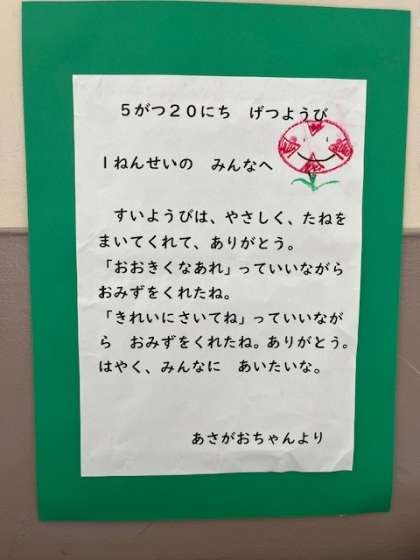 ５がつ２０にち　げつようび
１ねんせいの　みんなへ
　すいようびは、やさしく、たねを
まいてくれて、ありがとう。
「おおきくなあれ」っていいながら
おみずをくれたね。
「きれいにさいてね」っていいなが
ら　おみずをくれたね。ありがとう。
はやく、みんなに　あいたいな。
あさがおちゃんより